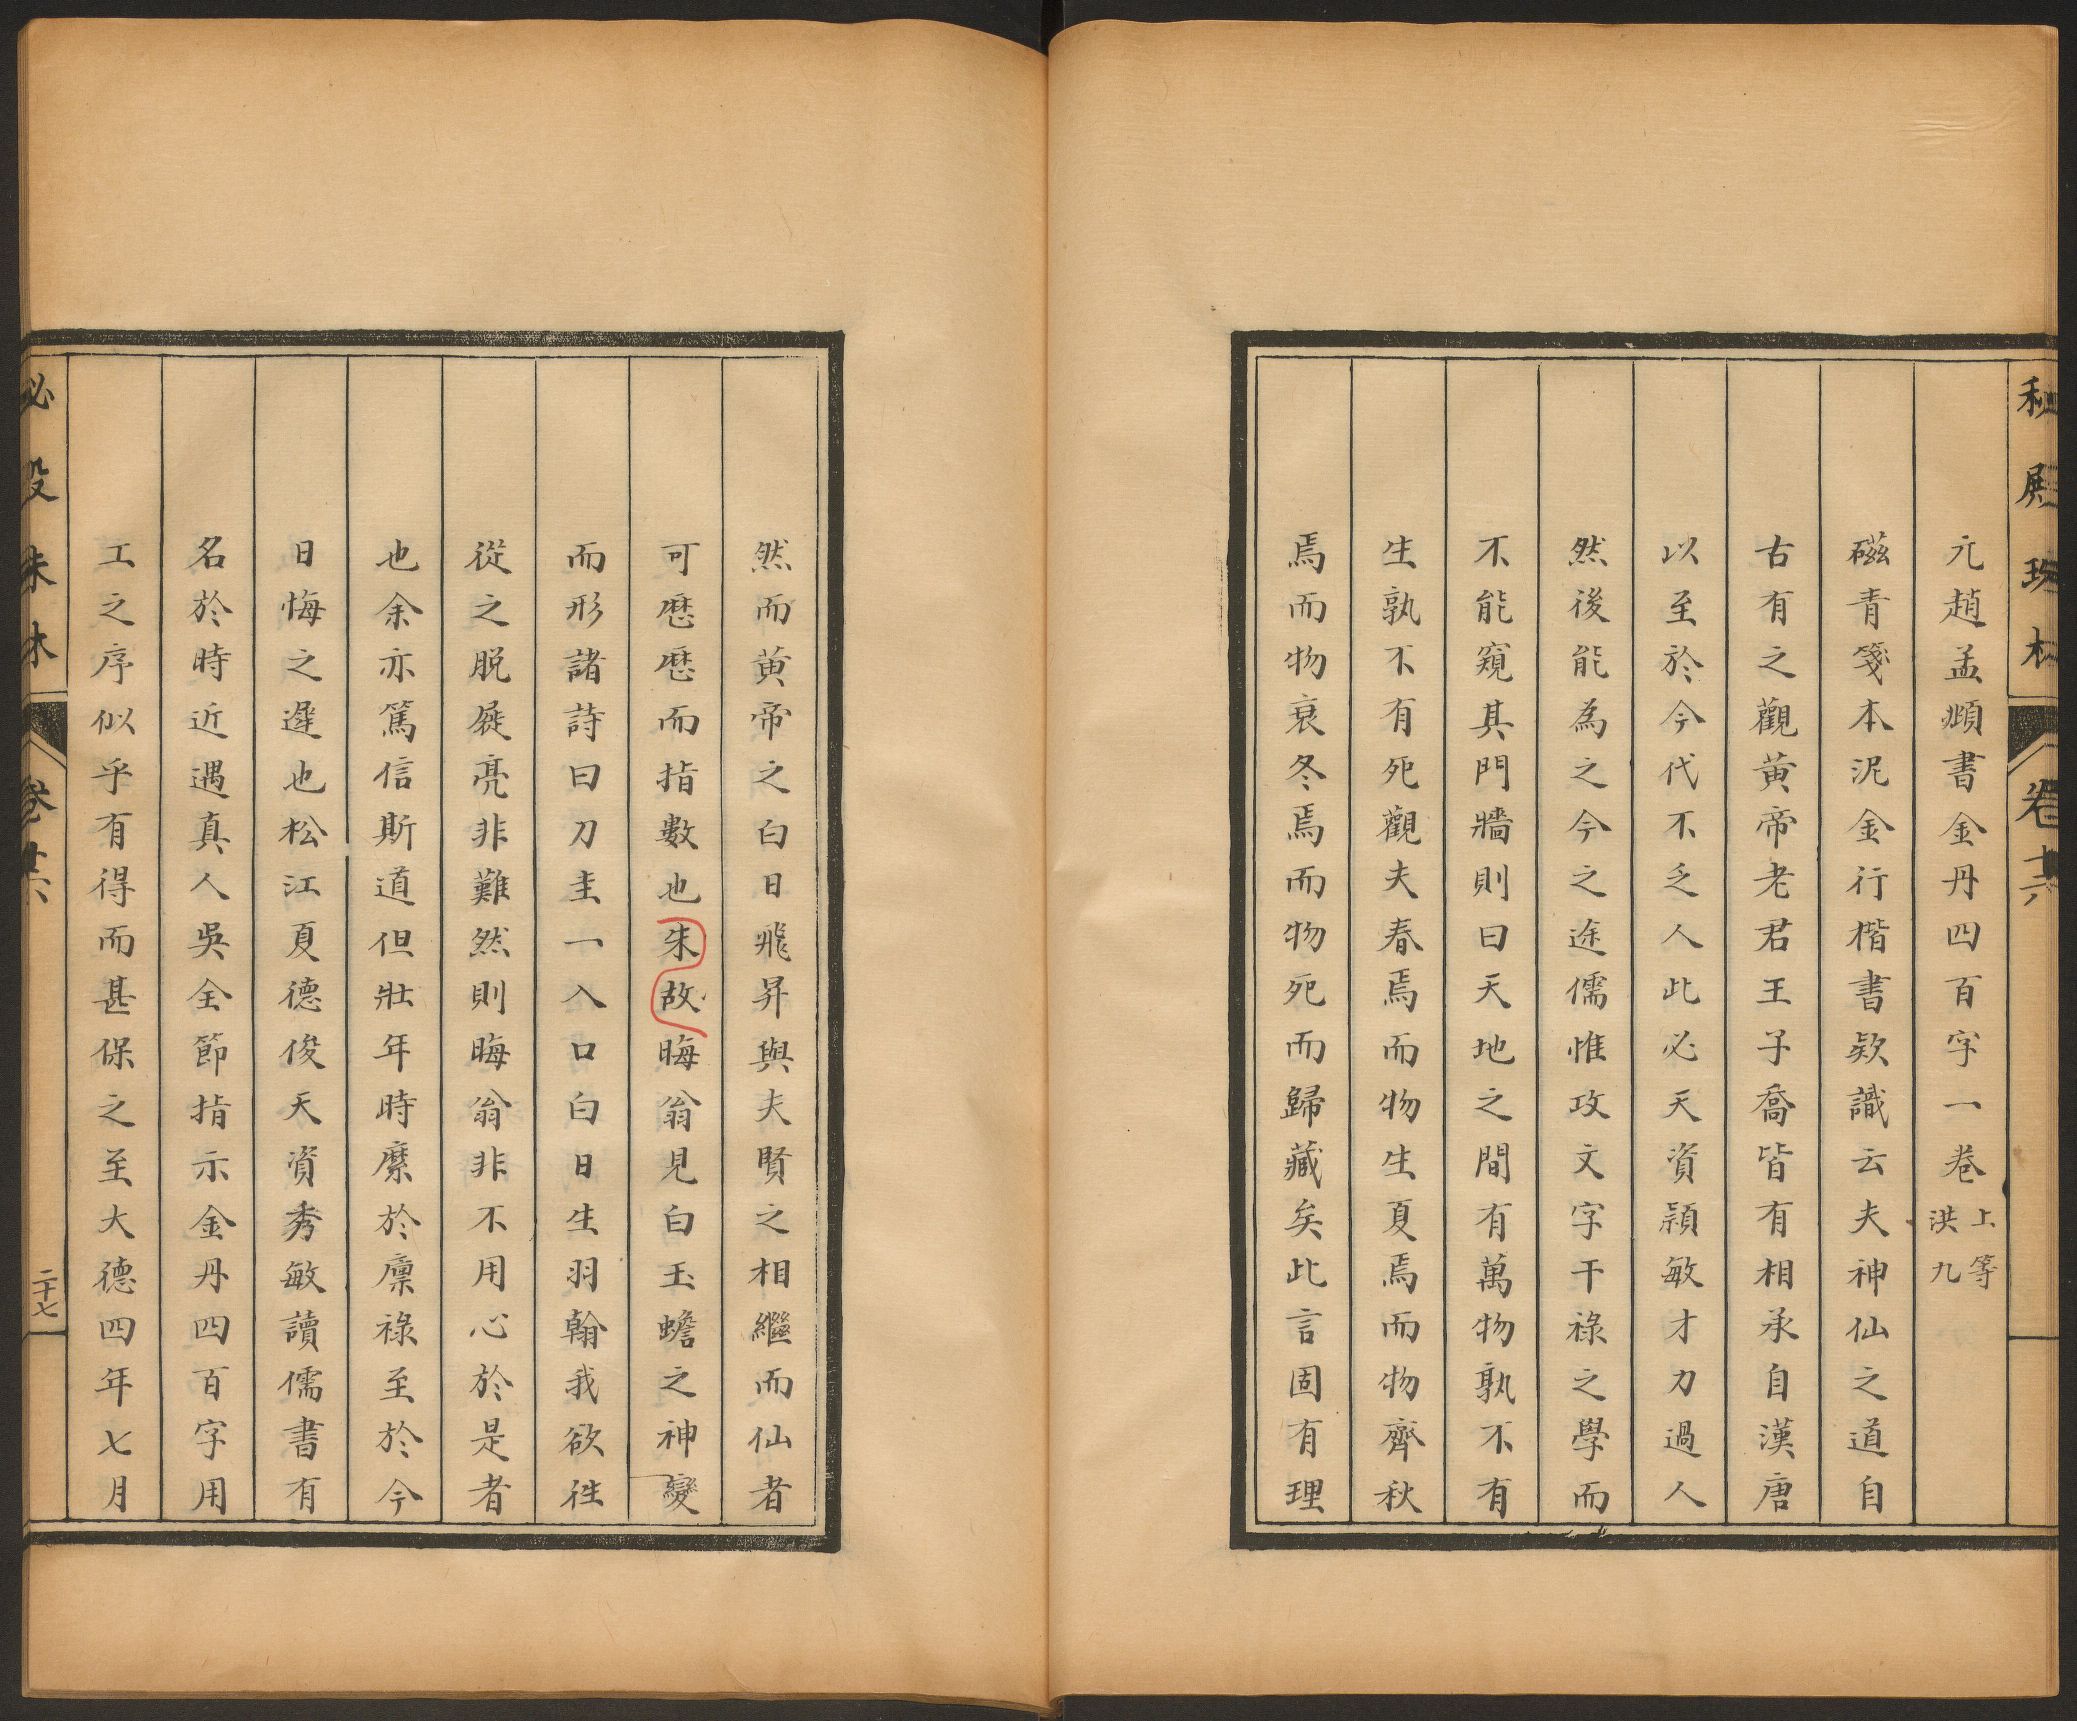 秘殿珠林 卷十六
元趙孟頫書金丹四百字一卷 上等 洪九
磁青箋本泥金行楷書欵識云夫神仙之道自
古有之觀黃帝老君王子喬皆有相承自漢唐
以至於今代不乏人此必天資穎敏才力過人
然後能為之今之途儒惟攻文字干祿之學而
不能窺其門牆則曰天地之間有萬物孰不有
生孰不有死觀夫春焉而物生夏焉而物齊秋
焉而物衰冬焉而物死而歸藏矣此言固有理
然而黃帝之白日飛昇與夫賢之相繼而仙者
可歷歷而指數也朱故晦翁見白玉蟾之神變
而形諸詩曰刀圭一入口白日生羽翰我欲徃
從之脱屣亮非難然則晦翁非不用心於是者
也余亦篤信斯道但壯年時縻於廪祿至於今
日悔之遲也松江夏德俊天資秀敏讀儒書有
名於時近遇真人吳全節指示金丹四百字用
工之序似乎有得而甚保之至大德四年七月
秘殿珠林 卷十六 二十七